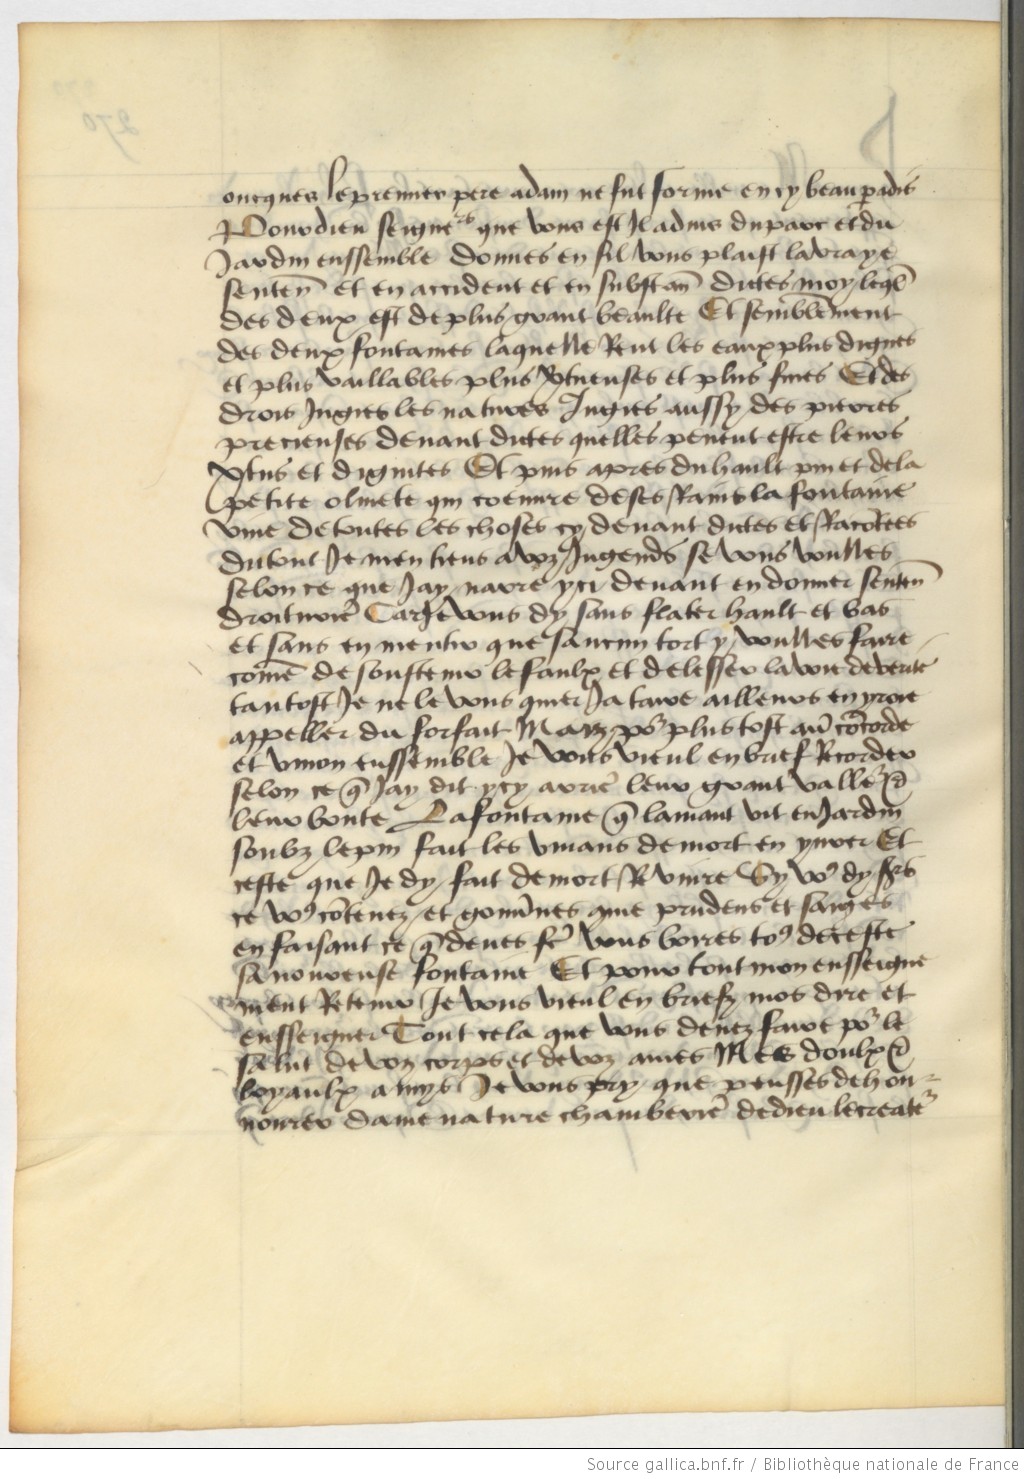 oncques le premier pere adam ne fut forme en cy beau padis
Pour dieu seigners que vous est Il aduis du parc et du
Jardin enssemble donnes en sil vous plaist la vraye
senten et en accident et en substan dictes moy leql
des deux est de plus grant beaulte Et semblement
des deux fontaines laquelle Rent les eaux plus dignes
et plus vaillables plus vtueuses et plus fines Et des
drois Jugies les natures Jugies aussy des pierres
precieuses deuant dictes quelles peuent estre leurs
vtus et dignites Et puis apres du hault pin et de la
petite oliuete qui coeuure de ses Rains la fontaine
viue de toutes les choses cy deuant dictes et Racotees
du tout Je men tiens a voz Jugemens se vous voulles
selon ce que Jay narre yci deuant en donner senten
droituriere Car Je vous dy sans flater hault et bas
et sans en mentir que saucun tort y voulles faire
come de soustenir le faulx et delesser la voie de verite
tantost Je ne le vous quier Ja taire ailleurs en yroie
appeller du forfait Mais por plus tost au cocorde
et vnion enssemble Je vous vieul en brief Recorder
selon ce q Jay dit ycy arrie leur grant valleur et
leur bonte La fontaine q lamant vit en Jardin
soubz le pin fait les viuans de mort en yuer Et
ceste que Je dy fait de mort Reuiure Sy vo9 dy sgrs
ce vo9 cotenez et gouuernes que prudens et saiges
en faisant ce q deues fe vous borres to9 de ceste
sauoureuse fontaine Et pour tout mon ensseigne
ment Retenir Je vous vieul en briefz mos dire et
ensseigner Tout cela que vous deuez faire por le
salut de voz corps et de voz ames Mes doulx et
loyaulx amys Je vous pry que pensses de hon-
nourer dame nature chamberie de dieu le creater
Source gallica.bnf.fr / Bibliothèque nationale de France